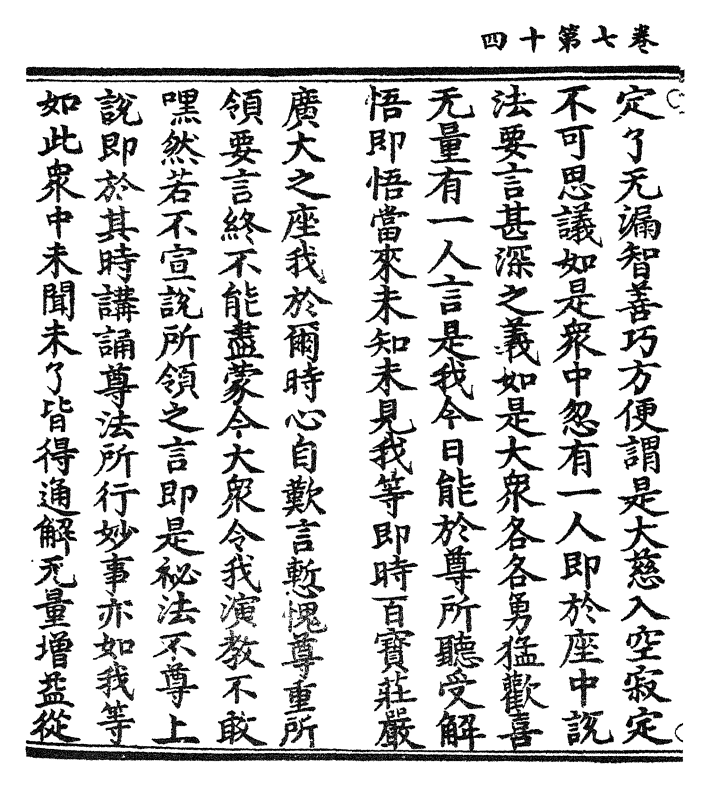 四十第七卷
定了无漏智善巧方便謂是大慈入空寂定
不可思議如是衆中忽有一人即於座中說
法要言甚深之義如是大衆各各勇猛歡喜
无量有一人言是我今日能於尊所聽受解
悟即悟當來未知未見我等即時百寶莊嚴
廣大之座我於爾時心自歎言慙愧尊重所
領要言終不能盡蒙今大衆令我演教不敢
嘿然若不宣說所領之言即是祕法不尊上
說即於其時講誦尊法所行妙事亦如我等
如此衆中未聞未了皆得通解无量增益從